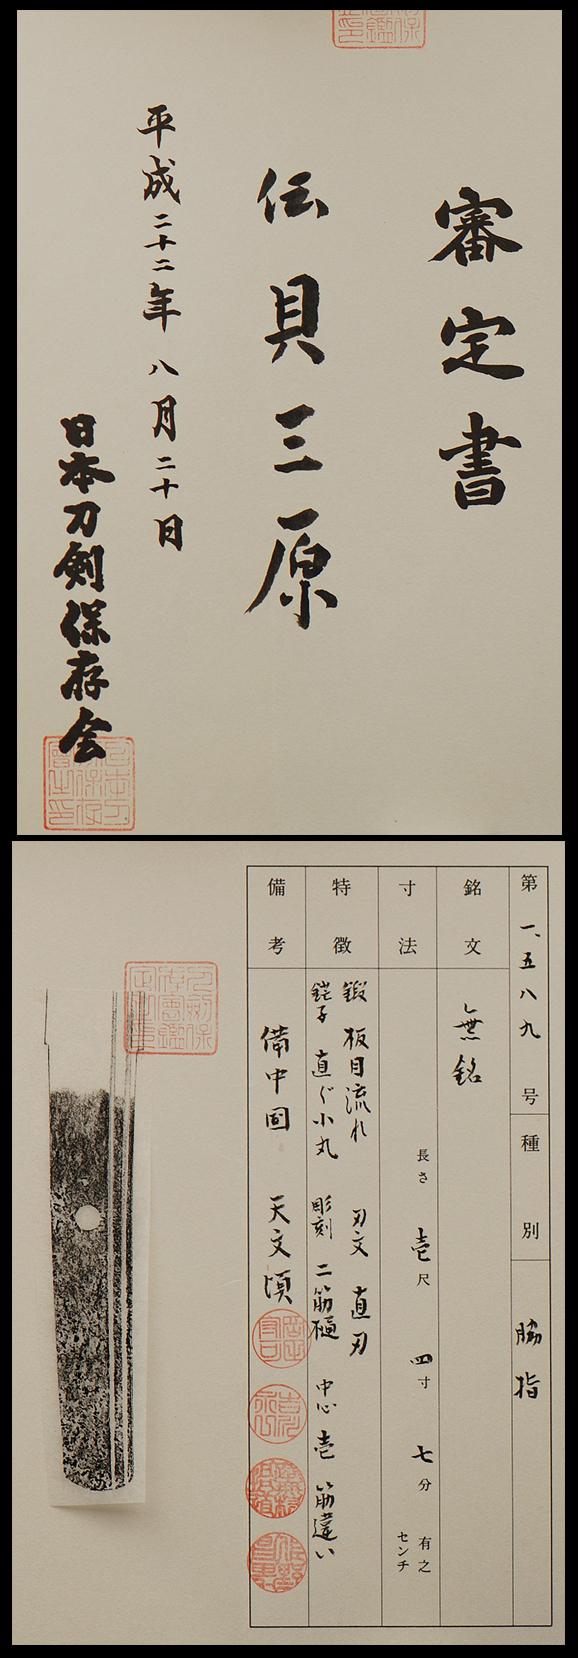 審定書
伝貝三原
平成二十二年八月二十日
日本刀剣保存会
第一、五八九号
種別 脇指
銘文 無銘
寸法 長さ 壱尺 四寸 七分 有之 センチ
特徴 鍛 板目流れ 刃文 直刃
鋩子 直ぐ小丸 彫刻 二筋樋 中心 壱 筋違い
備考 備中国 天文頃